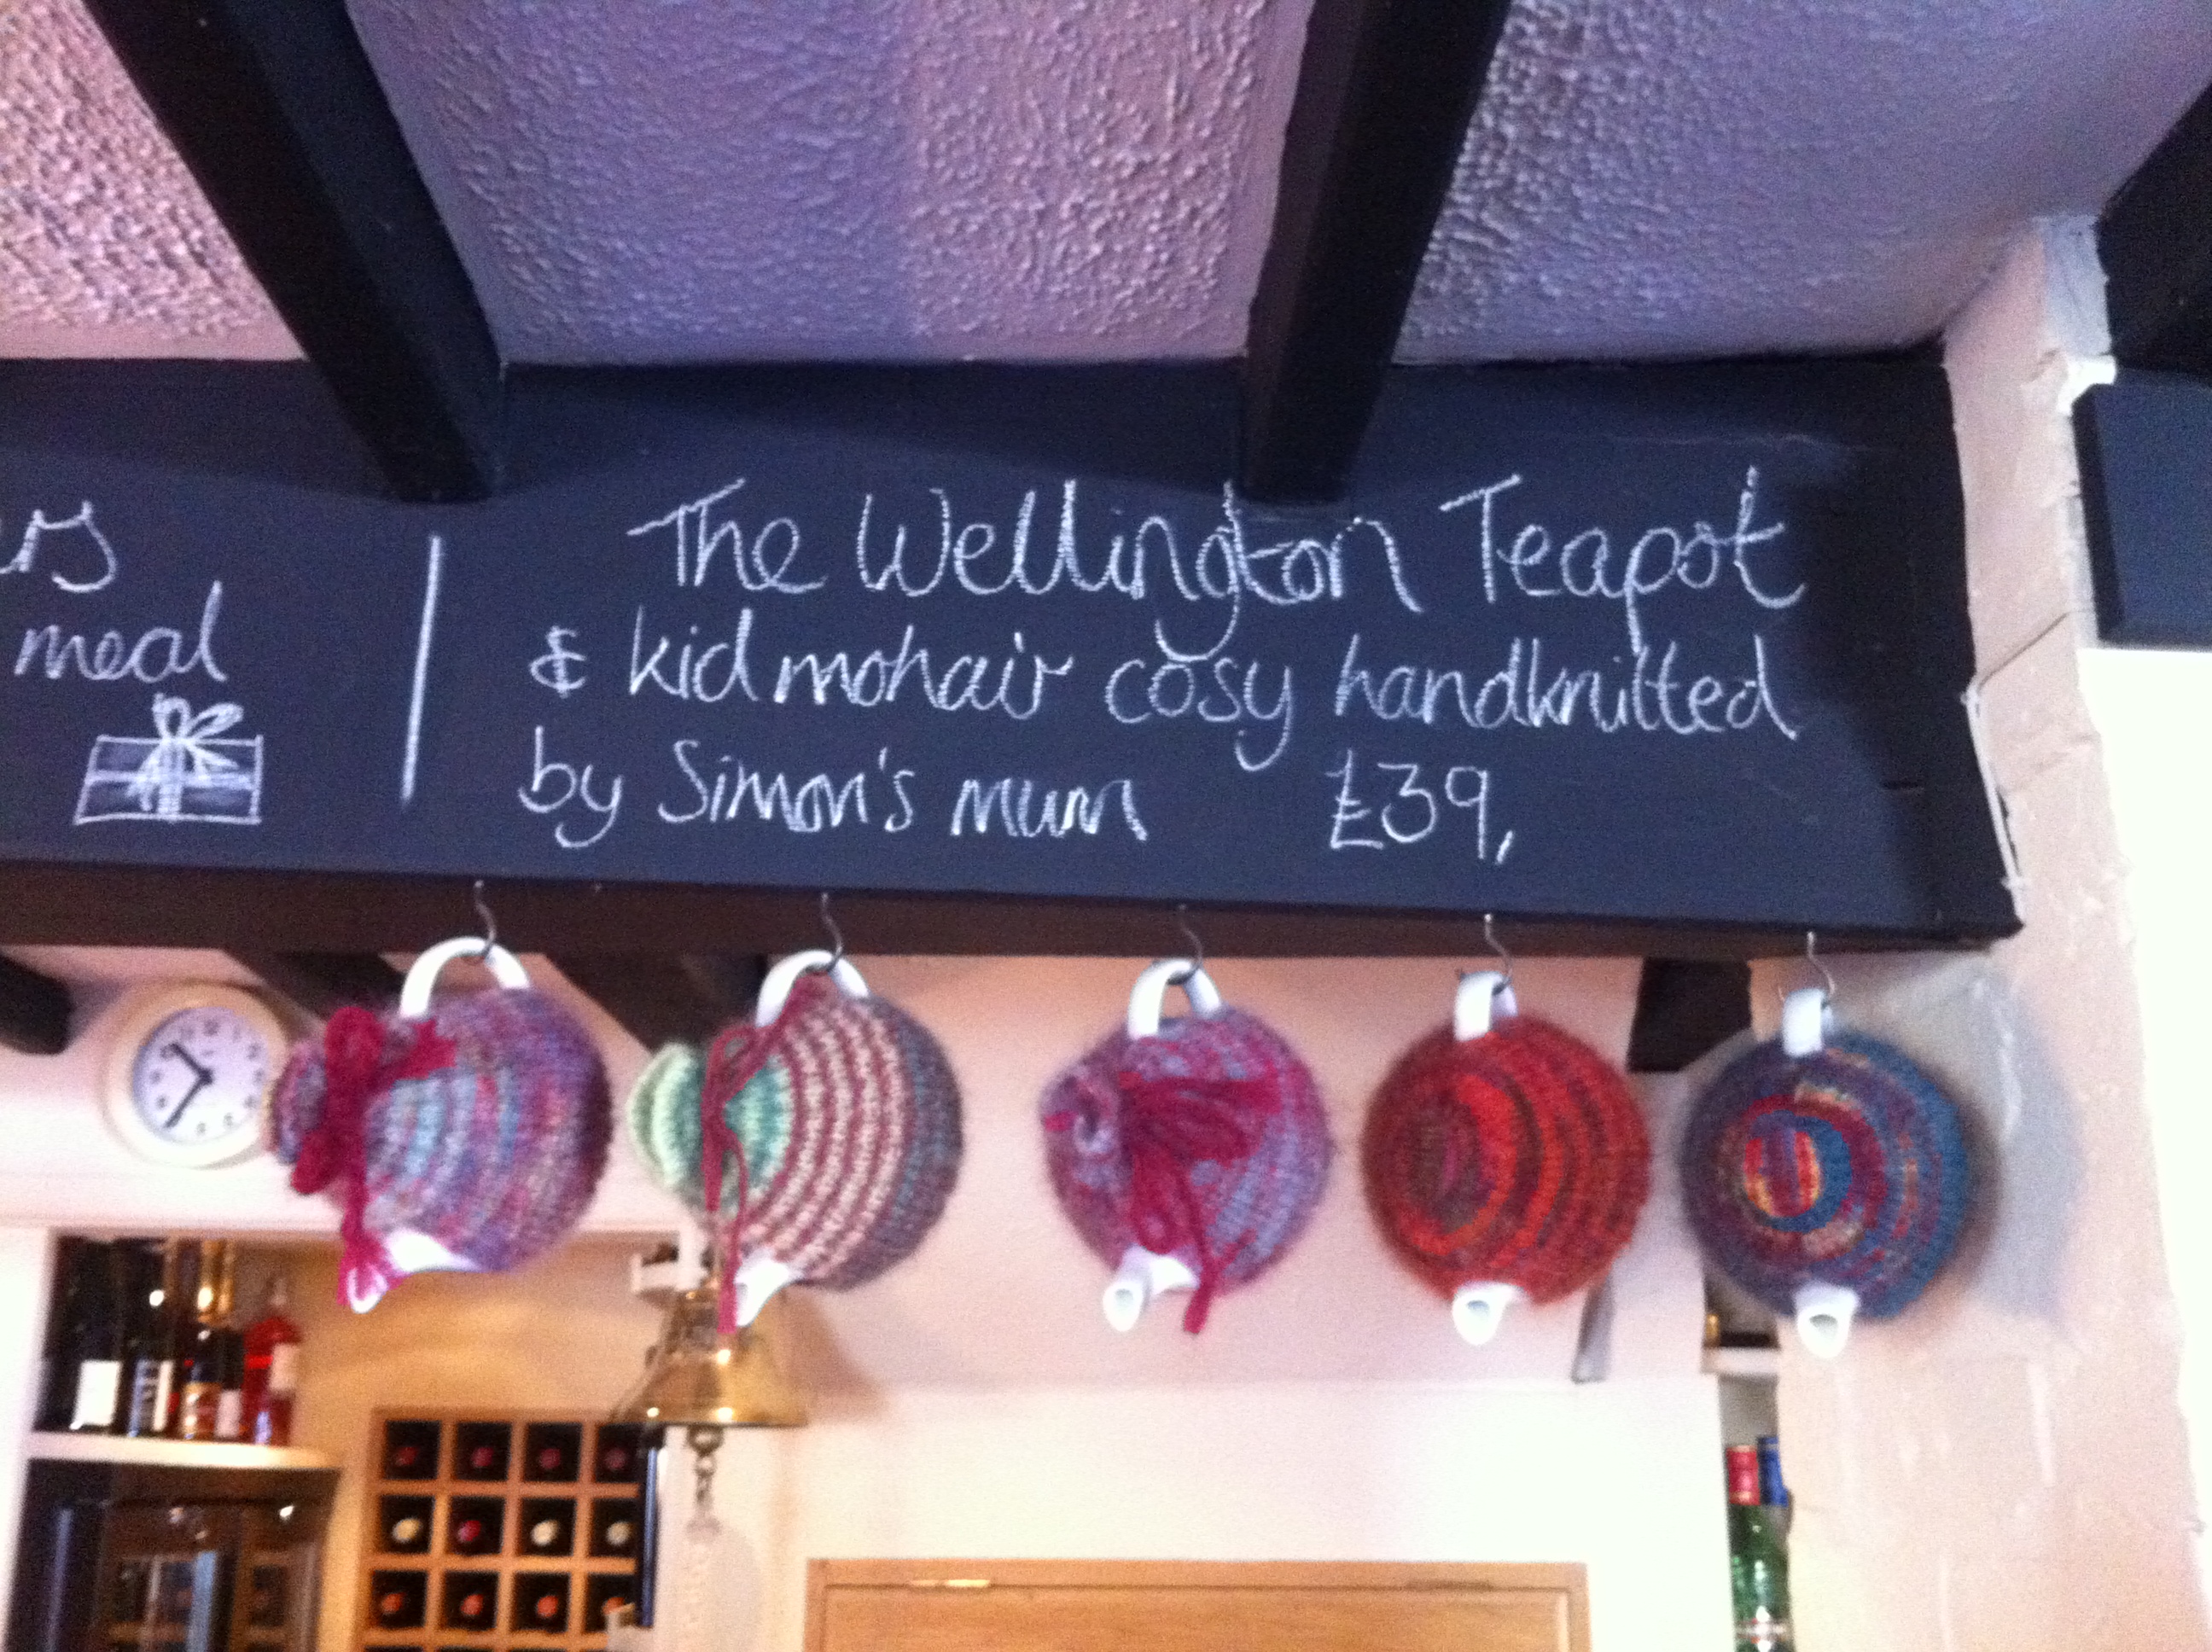 meal
The Wellington Teapot
& kid mohair cosy handknitted
by Simon's mum £39,